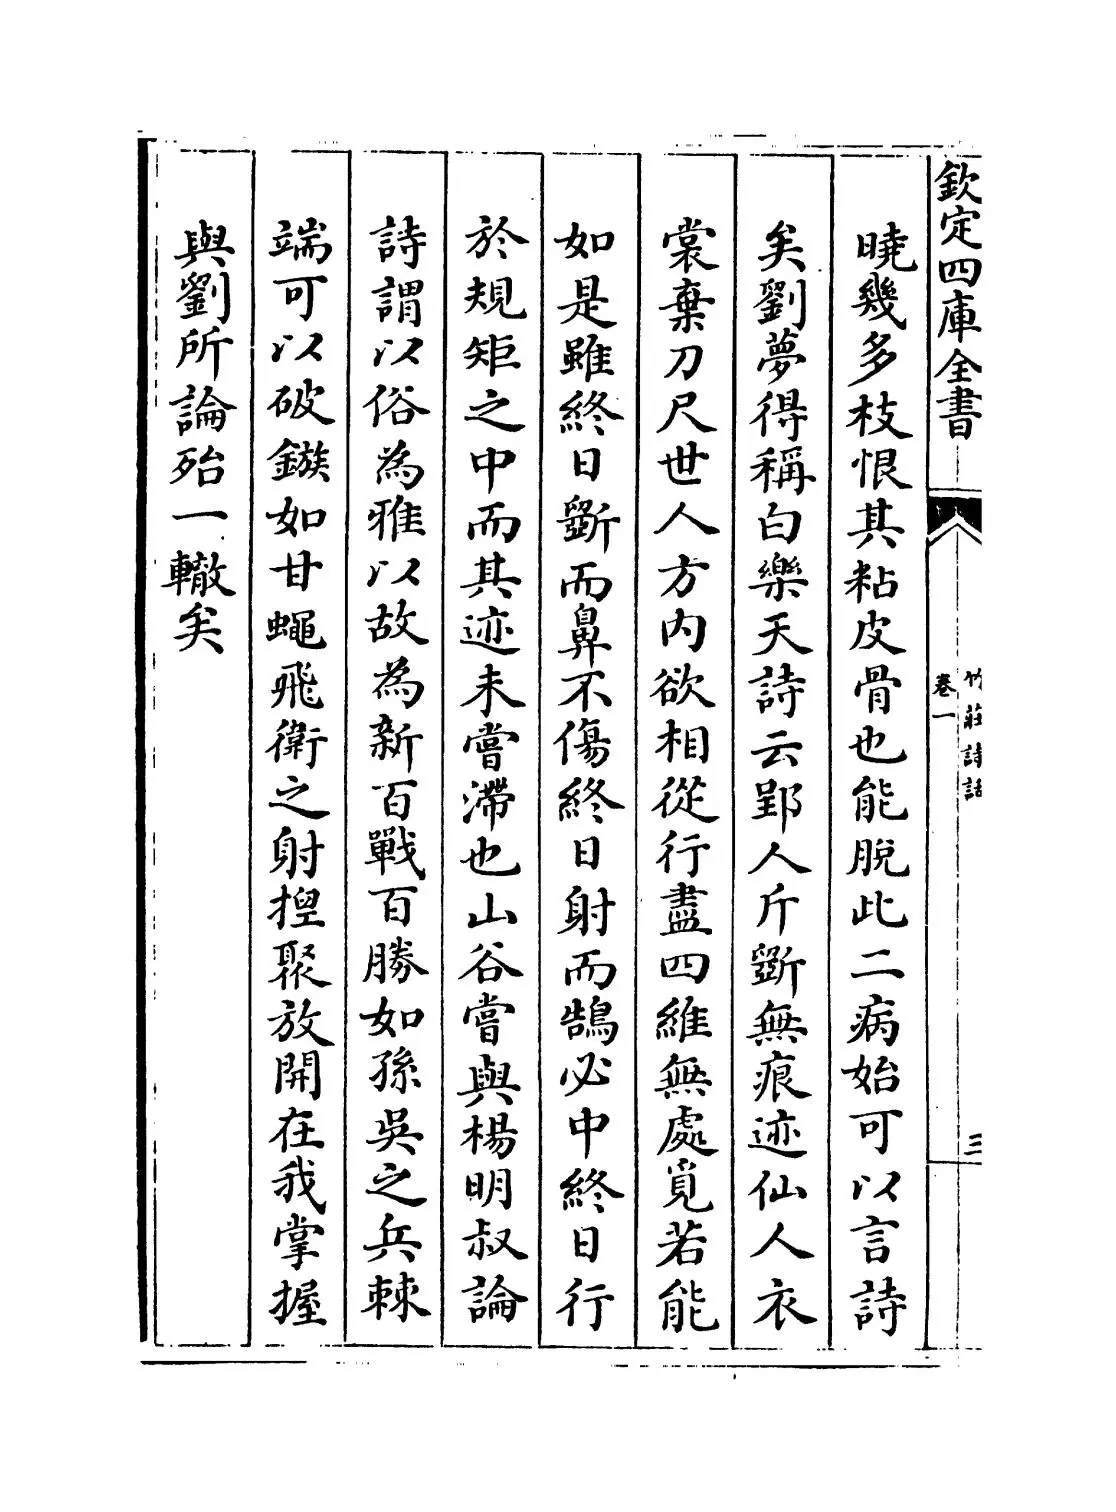 欽定四庫全書
竹莊詩話
卷一
三
曉幾多枝恨其粘皮骨也能脫此二病始可以言詩
矣劉夢得稱白樂天詩云郢人斤斵無痕迹仙人衣
裳棄刀尺世人方內欲相從行盡四維無處覓若能
如是雖終日斵而鼻不傷終日射而鵠必中終日行
於規矩之中而其迹未嘗滯也山谷嘗與楊明叔論
詩謂以俗為雅以故為新百戰百勝如孫吳之兵棘
端可以破鏃如甘蠅飛衛之射揑聚放開在我掌握
與劉所論殆一轍矣